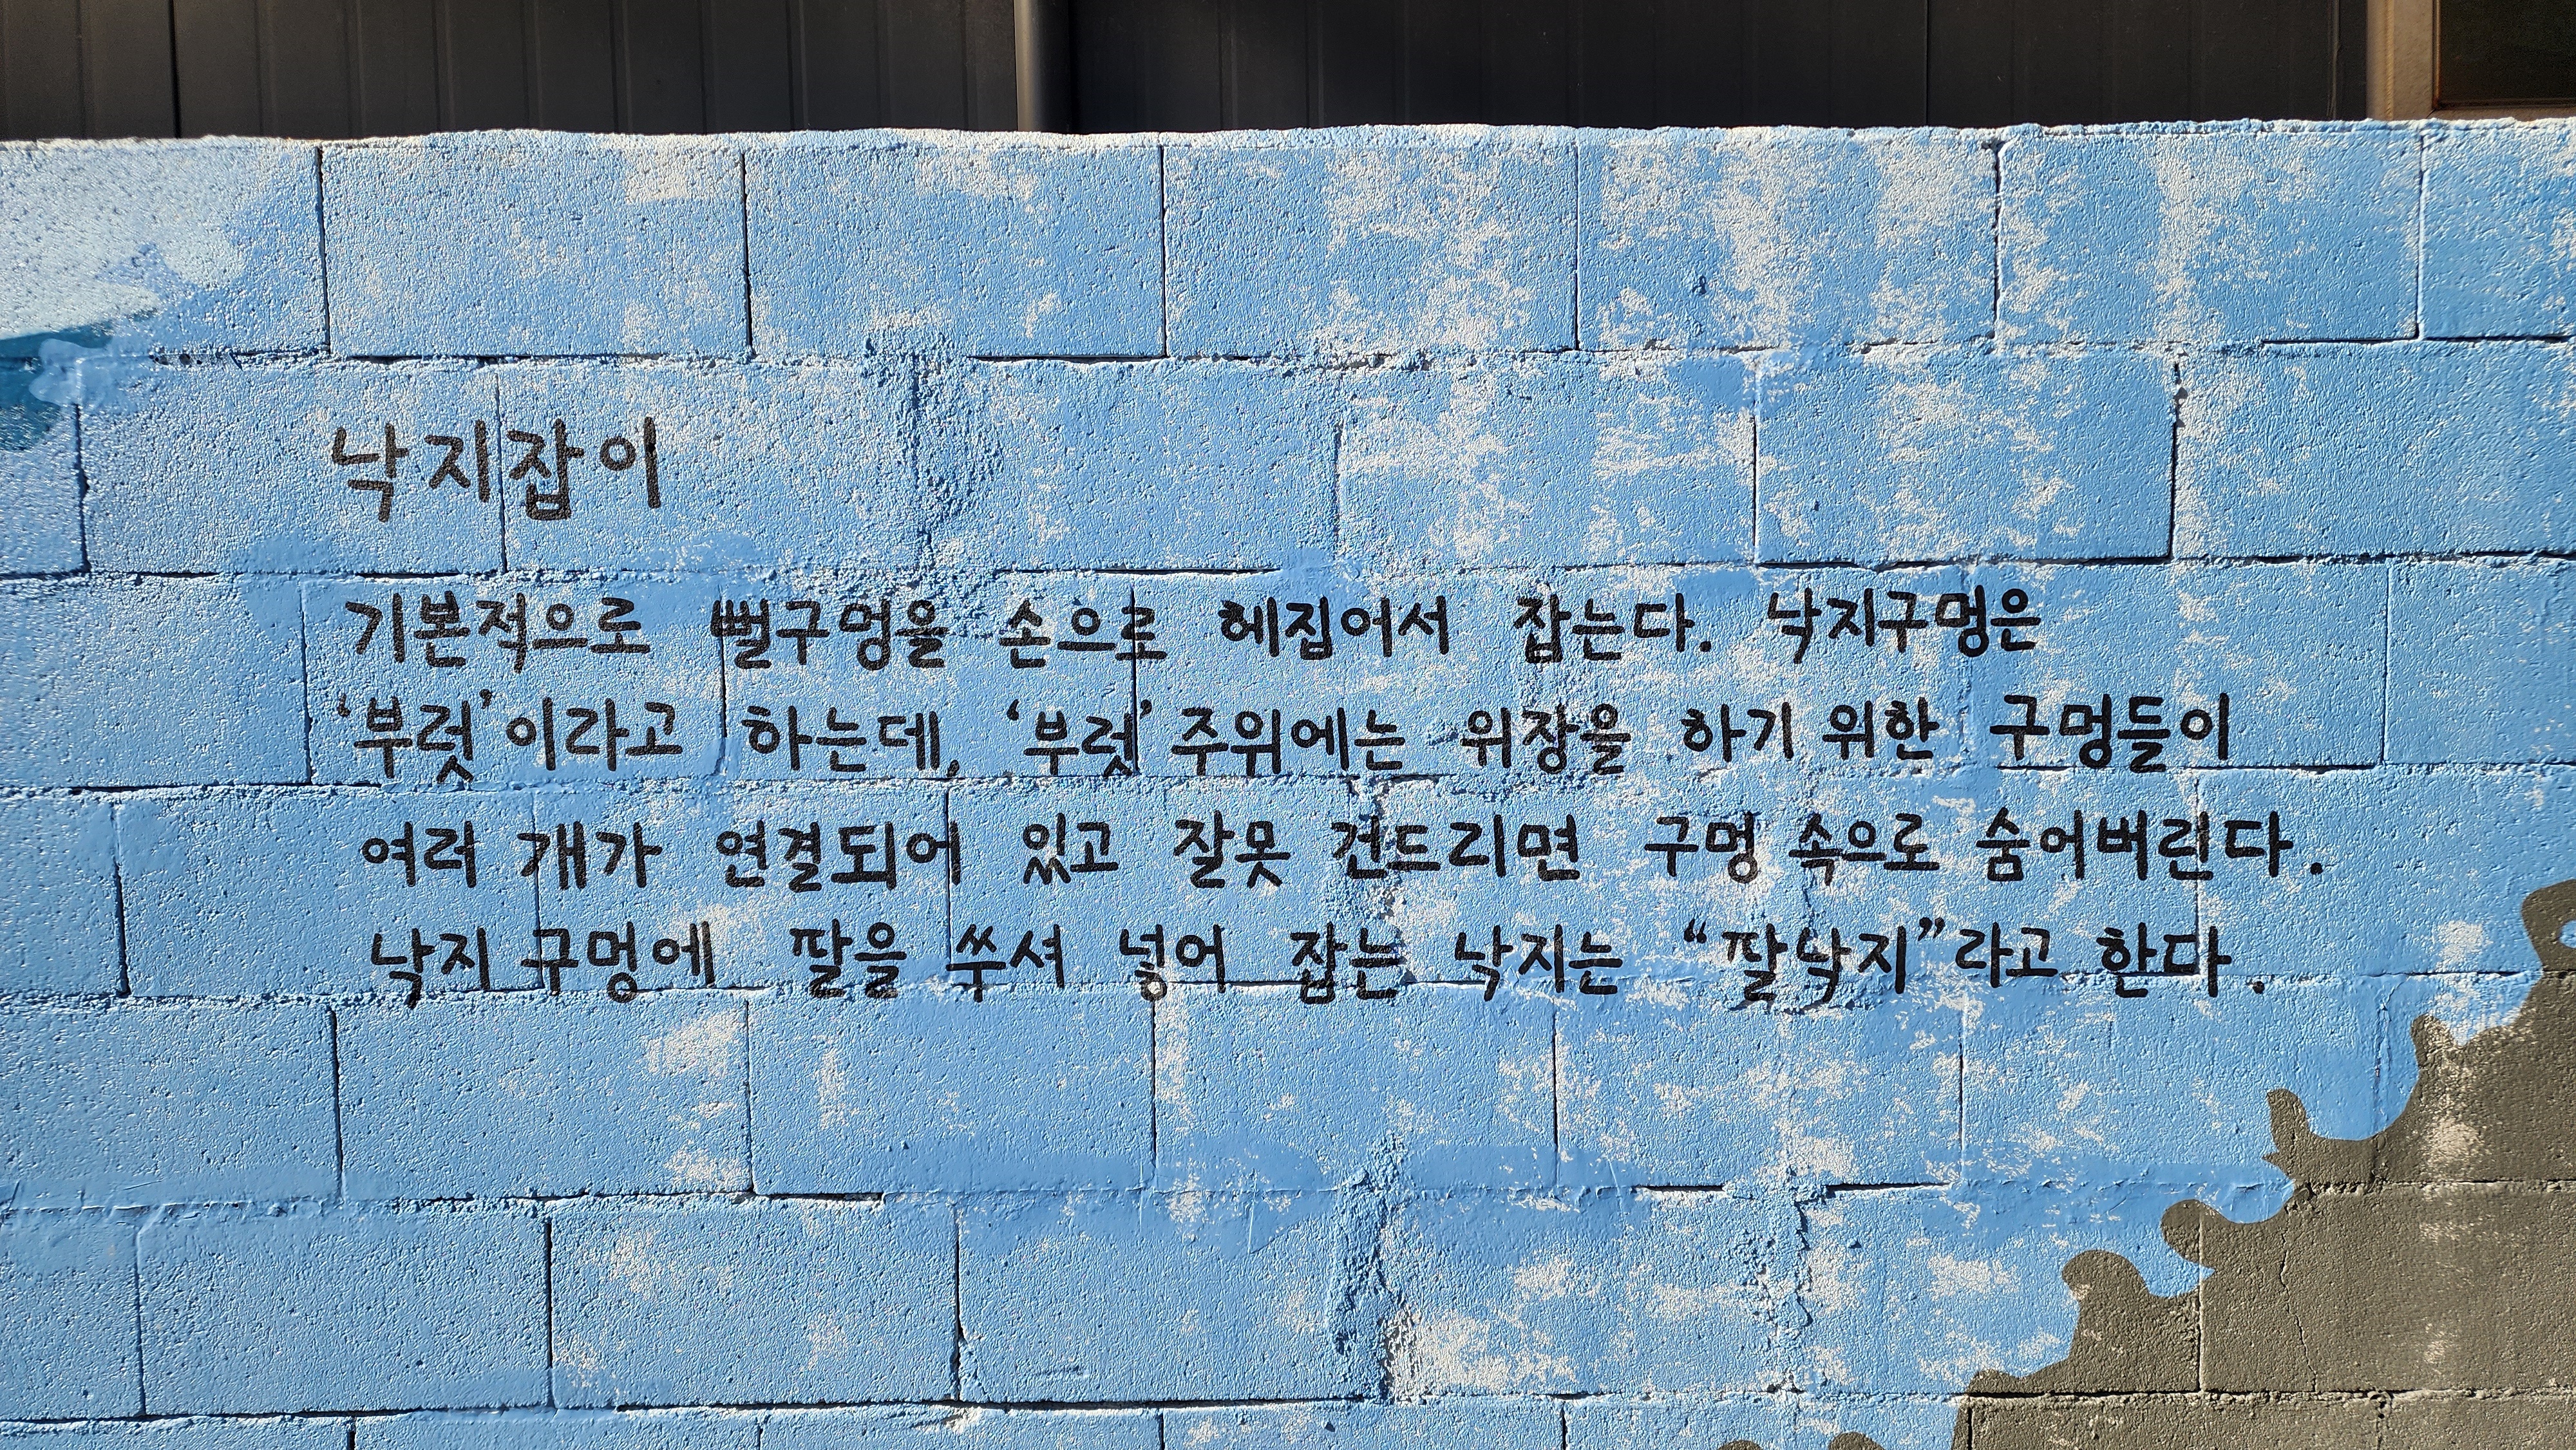 낙지잡이
기본적으로 뻘구멍을 손으로 헤집어서 잡는다. 낙지구멍은
‘부럿’이라고 하는데, ‘부럿’ 주위에는 위장을 하기 위한 구멍들이
여러 개가 연결되어 있고 잘못 건드리면 구멍 속으로 숨어버린다.
낙지 구멍에 팔을 쑤셔 넣어 잡는 낙지는 “팔낙지”라고 한다.